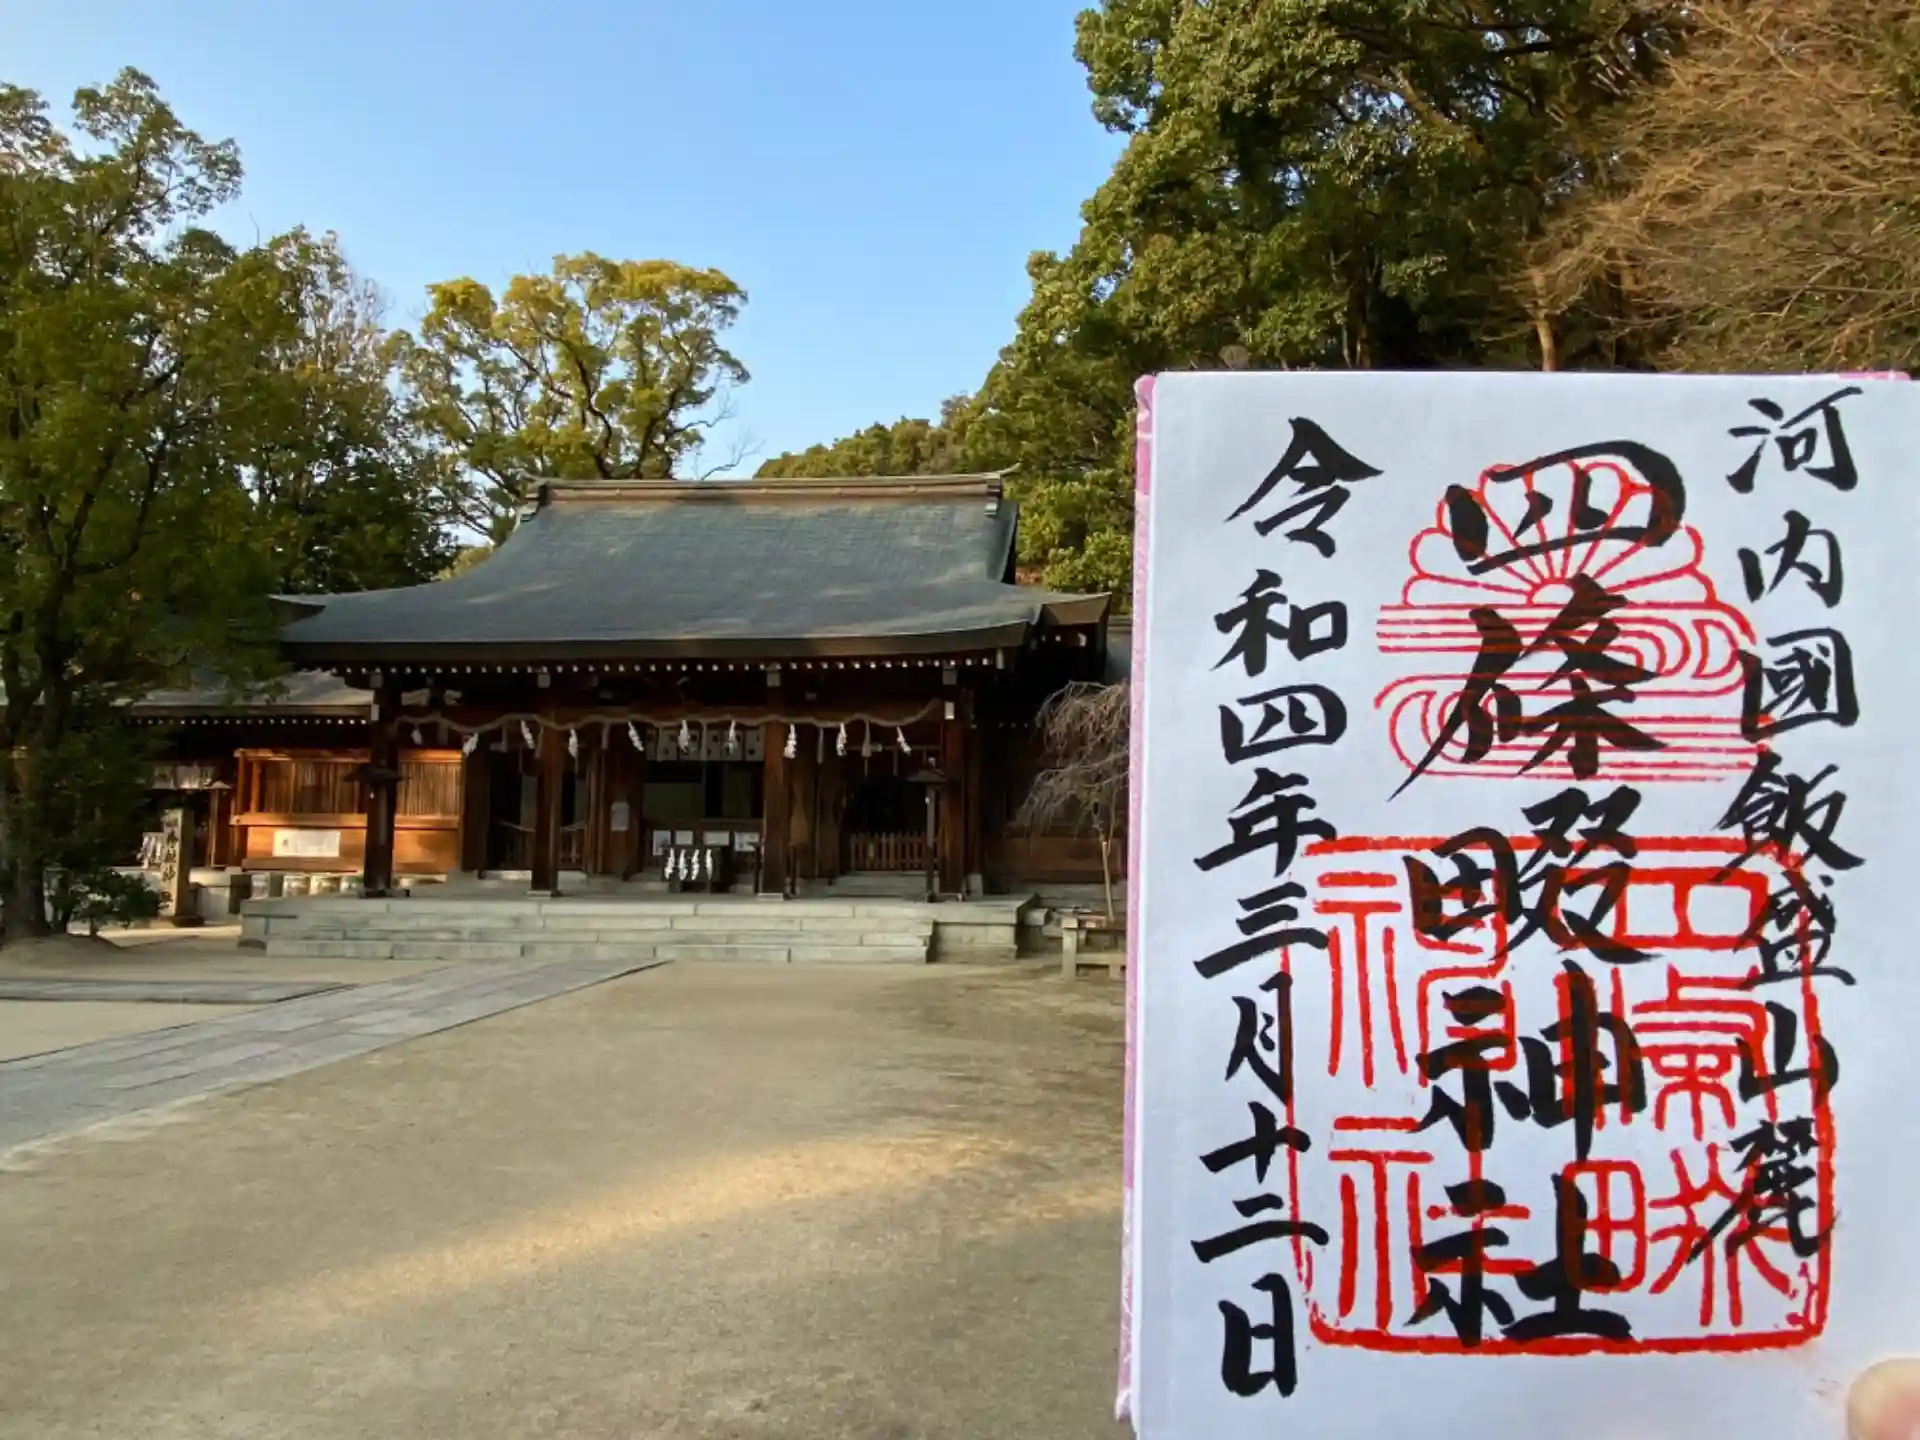 河内國飯盛山麓
四條畷神社
令和四年三月十二日
四條畷神社